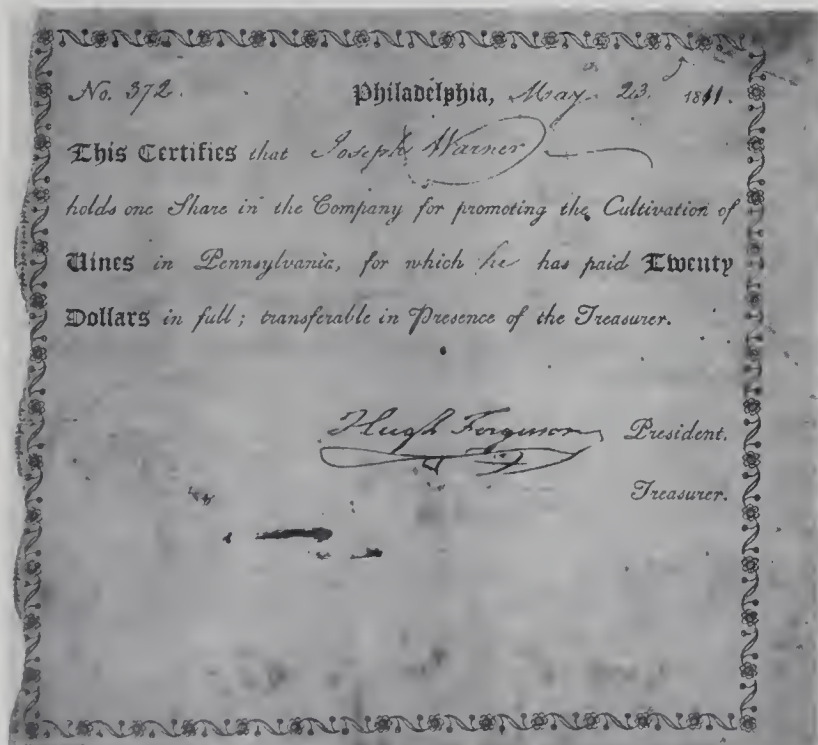 No. 372. Philadelphia, May 23. 1811.
This Certifies that Joseph Warner
holds one Share in the Company for promoting the Cultivation of
Vines in Pennsylvania, for which he has paid Twenty
Dollars in full; transferable in Presence of the Treasurer.
Hugh Ferguson President.
Treasurer.